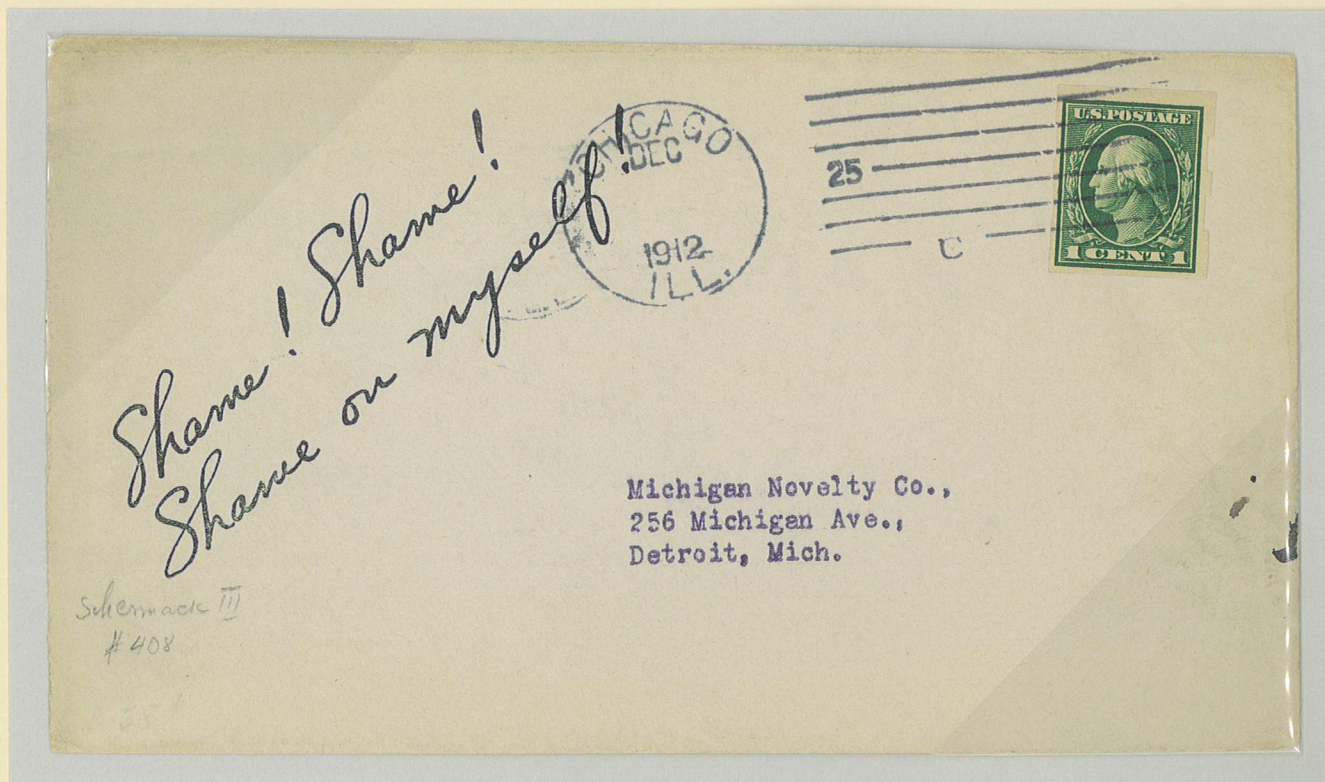 Shame! Shame!
Shame on myself!
CHICAGO
DEC
1912
ILL.
25
C
U.S. POSTAGE
1 CENT 1
Michigan Novelty Co.,
256 Michigan Ave.,
Detroit, Mich.
Schermack III
#408